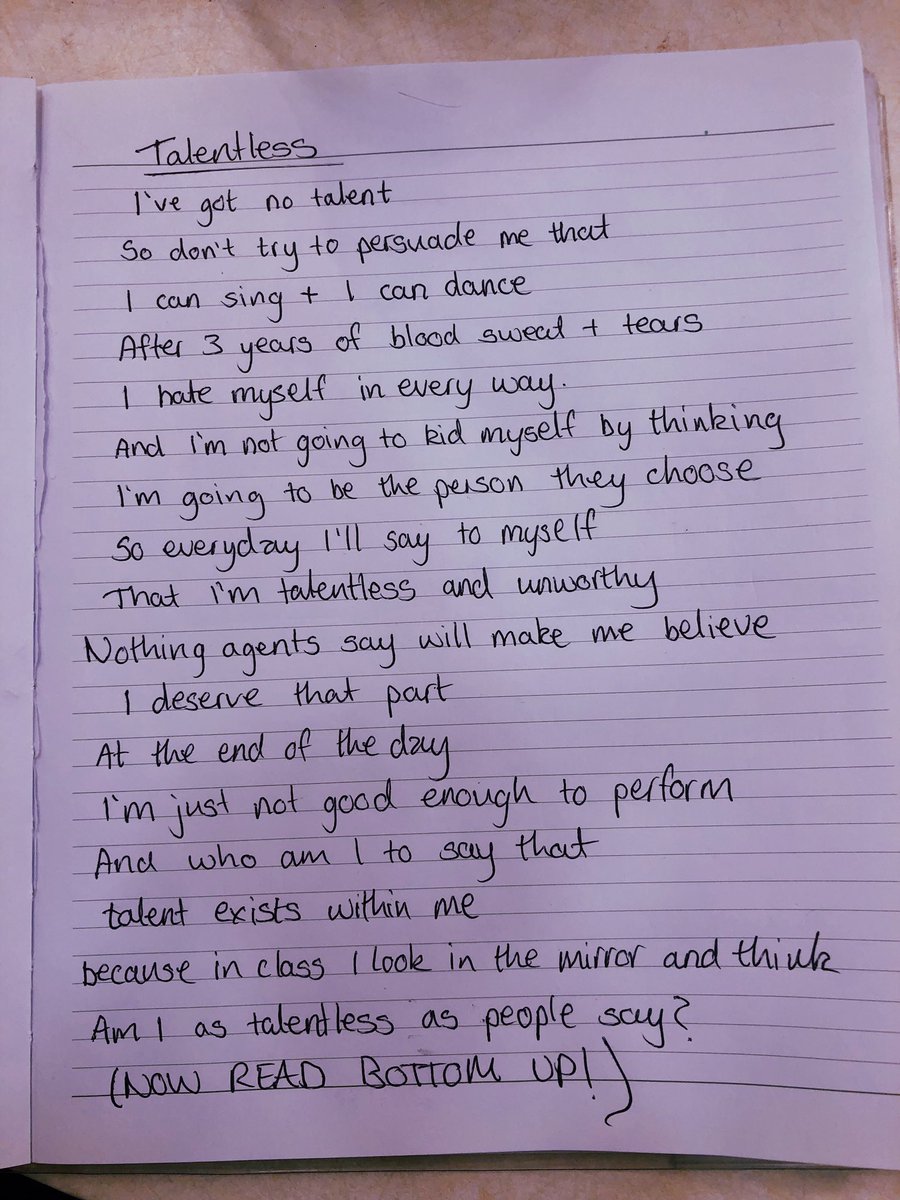 Talentless
I've got no talent
So don't try to persuade me that
I can sing + I can dance
After 3 years of blood sweat + tears
I hate myself in every way.
And i'm not going to kid myself by thinking
I'm going to be the person they choose
So everyday I'll say to myself
That i'm talentless and unworthy
Nothing agents say will make me believe
I deserve that part
At the end of the day
I'm just not good enough to perform
And who am I to say that
talent exists within me
because in class I look in the mirror and think
Am I as talentless as people say?
(NOW READ BOTTOM UP!)